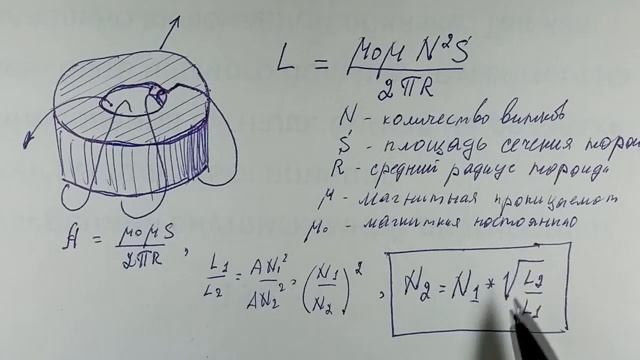 L = μ₀μ N²S / 2πR
N - количество витков
S - площадь сечения торои
R - средний радиус тороида
μ - магнитная проницаемот
μ₀ - магнитная постоянно
A = μ₀μS / 2πR ,
L₁ / L₂ = AN₁² / AN₂² = (N₁ / N₂)² ,
N₂ = N₁ * √(L₂ / L₁)